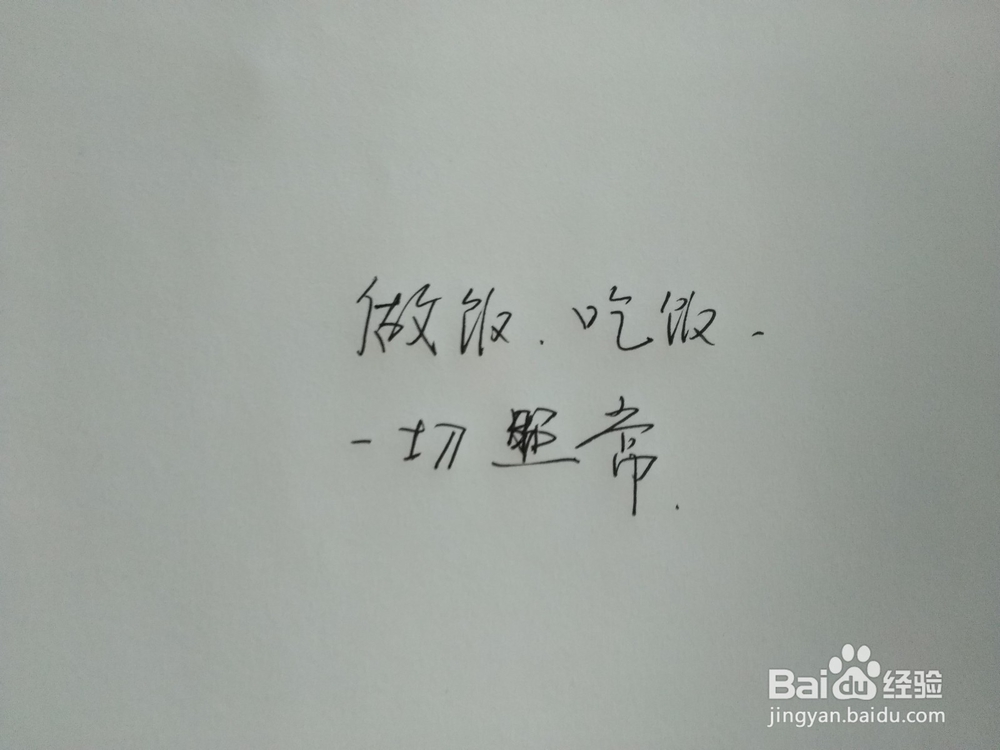 做饭.吃饭.
一切照常.
Baidu经验
jingyan.baidu.com